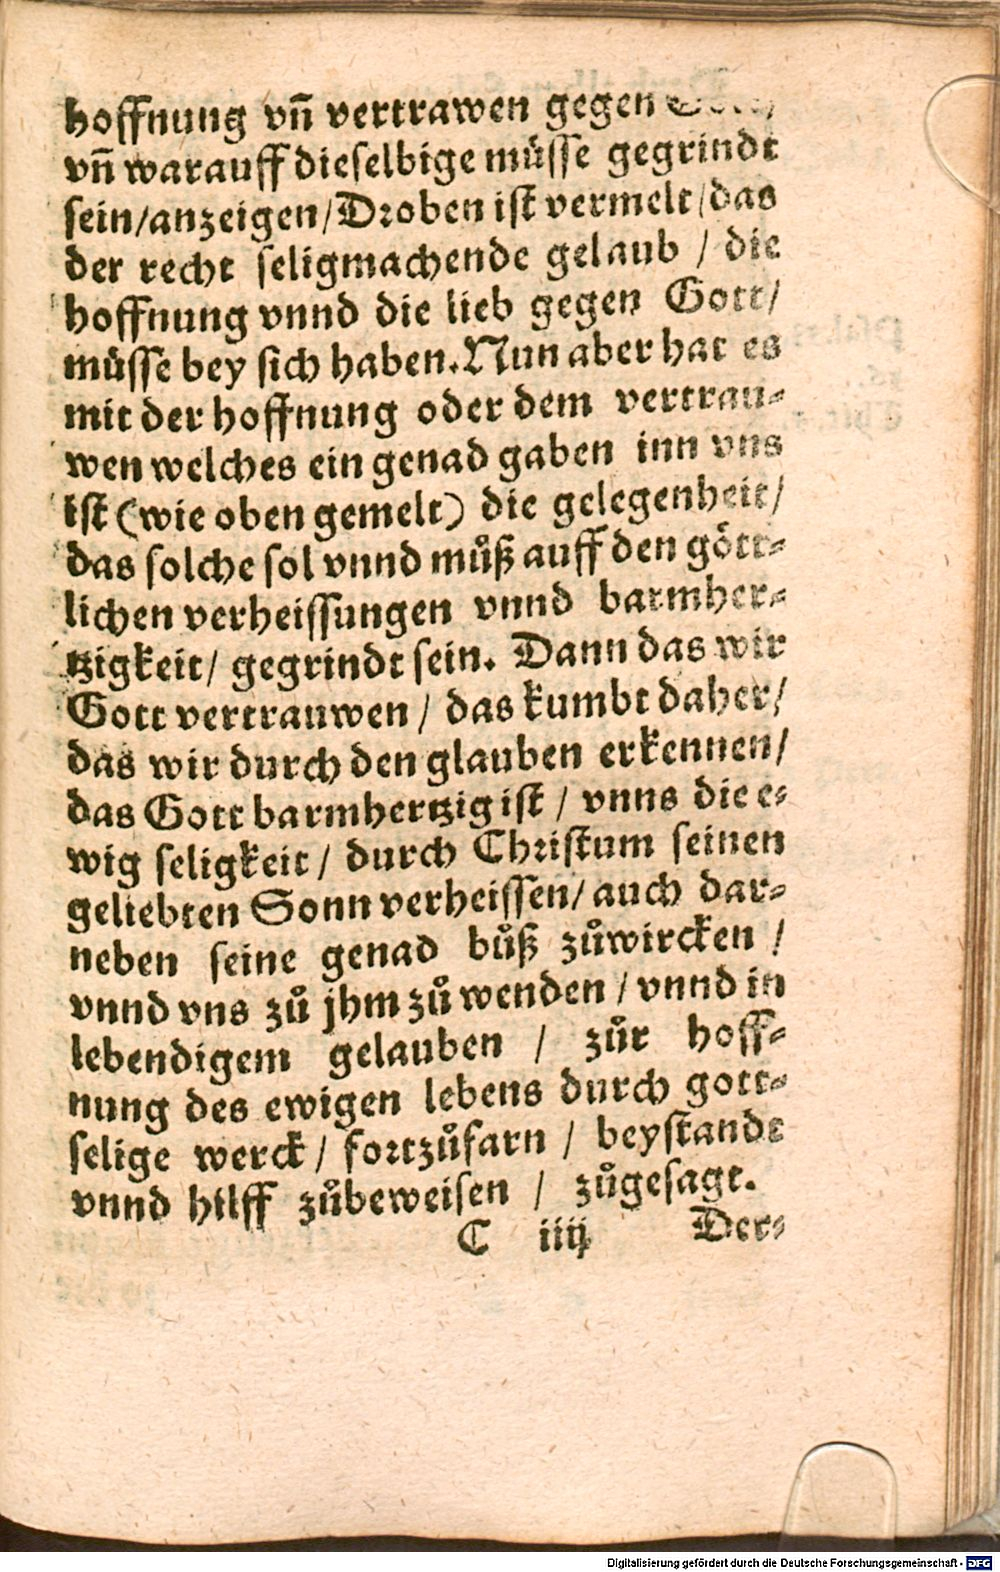 hoffnung vn̄ vertrawen gegen
vn̄ warauff dieselbige müsse gegrindt
sein/anzeigen/Droben ist vermelt/das
der recht seligmachende gelaub / die
hoffnung vnnd die lieb gegen Gott/
müsse bey sich haben. Nun aber hat es
mit der hoffnung oder dem vertrau⸗
wen welches ein genad gaben inn vns
ist (wie oben gemelt) die gelegenheit/
das solche sol vnnd můß auff den gött⸗
lichen verheissungen vnnd barmher⸗
tzigkeit/ gegrindt sein. Dann das wir
Gott vertrauwen / das kumbt daher/
das wir durch den glauben erkennen/
das Gott barmhertzig ist / vnns die e⸗
wig seligkeit / durch Christum seinen
geliebten Sonn verheissen/ auch dar⸗
neben seine genad bůß zůwircken /
vnnd vns zů jhm zů wenden / vnnd in
lebendigem gelauben / zůr hoff⸗
nung des ewigen lebens durch gott⸗
selige werck / fortzůfarn / beystandt
vnnd hilff zůbeweisen / zůgesagt.
C iiij Der⸗
Digitalisierung gefördert durch die Deutsche Forschungsgemeinschaft - DFG